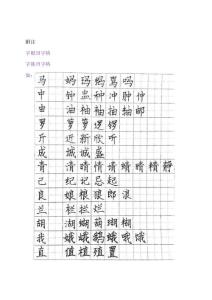 附注
字根同字族
字族同字族
马 妈 玛 码 骂 吗
中 钟 忠 种 冲 肿 仲
由 油 柚 袖 抽 轴 邮
罗 萝 箩 逻 锣
斤 近 新 欣 听
成 城 诚 盛
青 清 请 情 晴 睛 精 静
己 纪 记 忌 起
良 娘 粮 狼 郎 浪
兰 栏 拦 烂
胡 湖 蝴 葫 瑚 糊
我 娥 峨 鹅 俄 哦 饿
直 值 植 殖 置